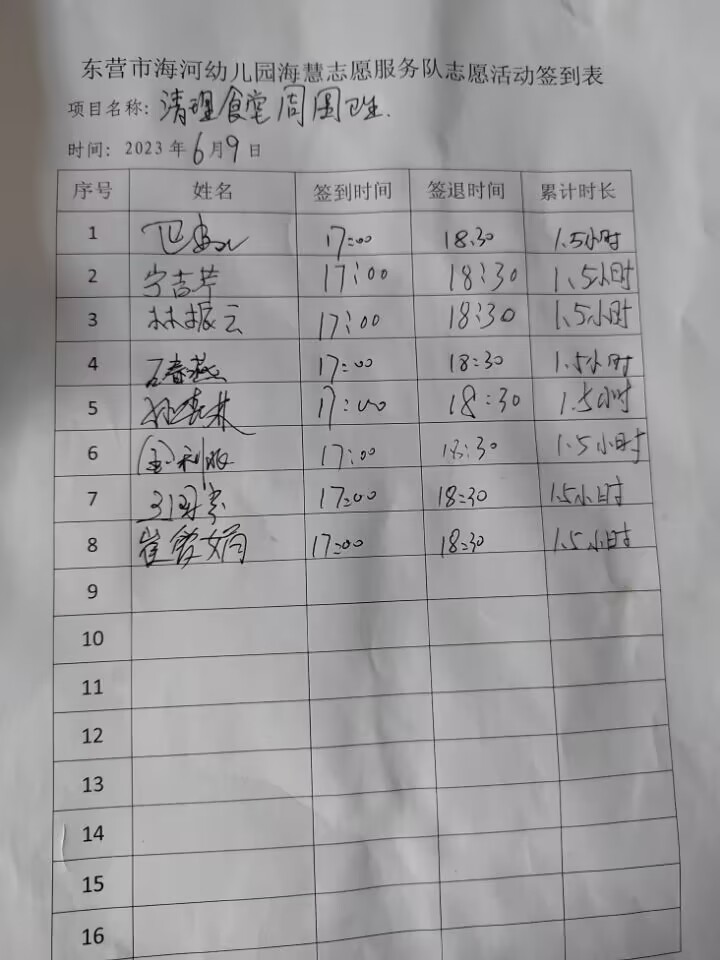 东营市海河幼儿园海慧志愿服务队志愿活动签到表
项目名称：清理食堂周围卫生.
时间：2023年6月9日
序号 姓名 签到时间 签退时间 累计时长
1 17:00 18:30 1.5小时
2 宁吉芹 17:00 18:30 1.5小时
3 林振云 17:00 18:30 1.5小时
4 石春燕 17:00 18:30 1.5小时
5 17:00 18:30 1.5小时
6 17:00 18:30 1.5小时
7 17:00 18:30 1.5小时
8 崔雪娟 17:00 18:30 1.5小时
9
10
11
12
13
14
15
16